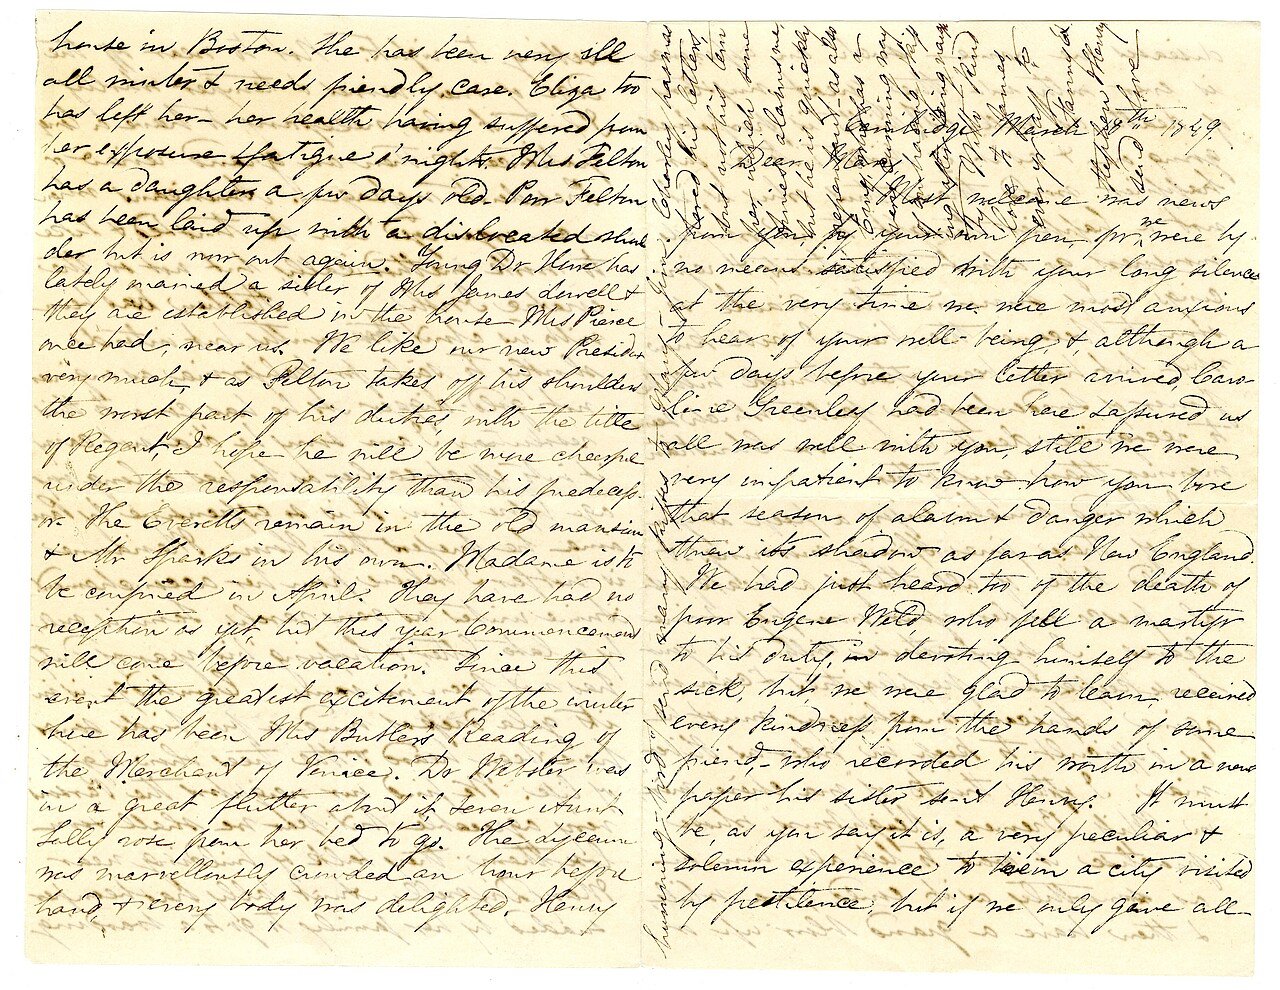 Cambridge March 19th 1849.
Dear Mary
Most welcome was news
from you by your own pen, for we were by
no means satisfied with your long silence
at the very time we were most anxious
to hear of your well-being, &, although a
few days before your letter arrived, Caro-
line Greenleaf had been here & assured us
all was well with you, still we were
very impatient to know how you bore
that season of alarm & danger which
threw its shadow as far as New England.
We had just heard too of the death of
poor Eugene Weld, who fell a martyr
to his duty, in devoting himself to the
sick, but, we were glad to learn, received
every kindness from the hands of some
friend, who recorded his worth in a news
paper his sister sent Henry. It must
be, as you say it is, a very peculiar &
solemn experience to be in a city visited
by pestilence, but if we only gave all-
house in Boston. She has been very ill
all winter & needs friendly care. Eliza too
has left her - her health having suffered from
her exposure & fatigue o' nights. Mrs Felton
has a daughter a few days old. Poor Felton
has been laid up with a dislocated shoul
der but is now out again. Young Dr Howe has
lately married a sister of Mrs James Lowell &
they are established in the house Mrs Peirce
once had, near us. We like our new President
very much, & as Felton takes off his shoulders
the worst part of his duties, with the title
of Regent, I hope he will be more cheerful
under the responsibility than his predecess-
or. The Everetts remain in the old mansion
& Mr Sparks in his own. Madame is to
be confined in April. They have had no
reception as yet but this year Commencement
will come before vacation. Since this
event the greatest excitement of the winter
here has been Mrs Butler's Reading of
the Merchant of Venice. Dr Webster was
in a great flutter about it, even Aunt
Sally rose from her bed to go. The Lyceum
was marvellously crowded an hour before
hand, & every body was delighted. Henry
humming-bird, & send many kisses to
Charley has mas
tered his letters,
but not his tem
per, which some
times alarms me,
but he is quickly
repentant, & as
love to James
Stephen & Henry
send love